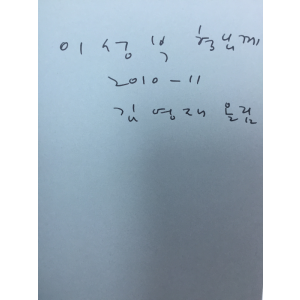 이성복 형께
2010-11
김영재 올림